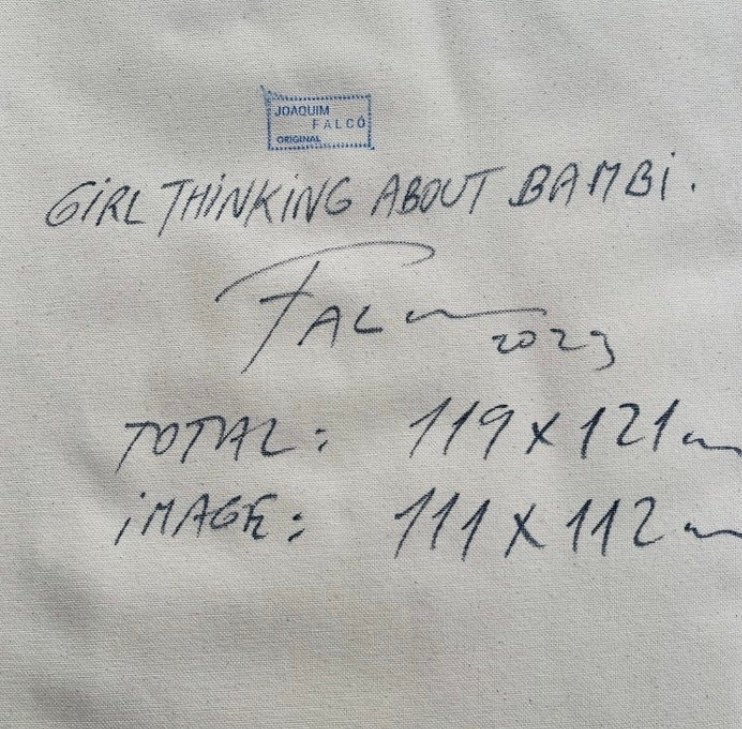 JOAQUIM
FALCÓ
ORIGINAL
GiRL THiNKiNG ABOUT BAMBi.
FALC
2023
TOTAL: 119 x 121 cm
iMAGE: 111 x 112 cm